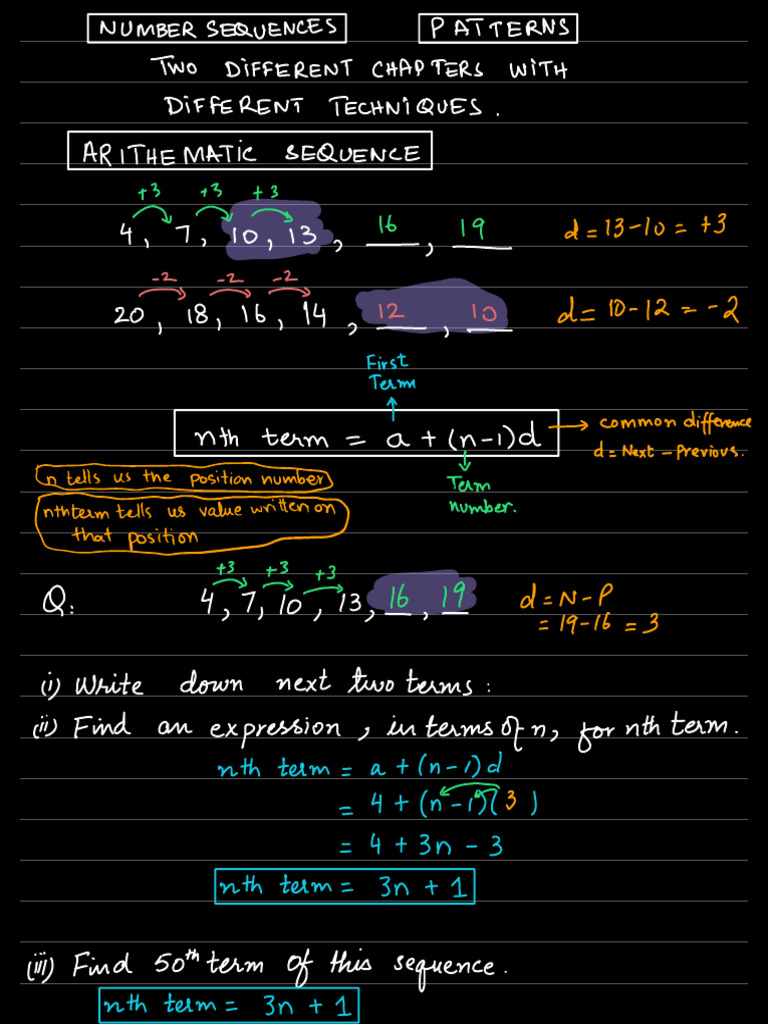 NUMBER SEQUENCES PATTERNS
TWO DIFFERENT CHAPTERS WITH
DIFFERENT TECHNIQUES.
ARITHEMATIC SEQUENCE
+3 +3 +3
4, 7, 10, 13, 16, 19 d = 13-10 = +3
-2 -2 -2
20, 18, 16, 14, 12, 10 d = 10-12 = -2
First
Term
nth term = a + (n-1)d → common difference
d = Next - Previous.
n tells us the position number
Term
number.
nth term tells us value written on
that position
+3 +3 +3
Q: 4, 7, 10, 13, 16, 19 d = N-P
= 19-16 = 3
(i) Write down next two terms:
(ii) Find an expression, in terms of n, for nth term.
nth term = a + (n-1)d
= 4 + (n-1)(3)
= 4 + 3n - 3
nth term = 3n + 1
(iii) Find 50th term of this sequence.
nth term = 3n + 1